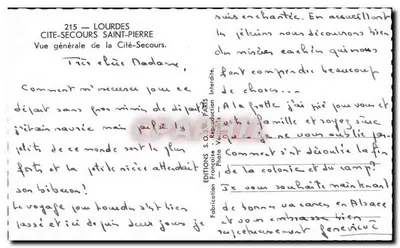 215 - LOURDES
CITÉ-SECOURS SAINT-PIERRE
Vue générale de la Cité-Secours.
Très chère Madame,
Comment m'excuser pour ce
départ sans gros mimi de départ
j'étais navrée mais
petits de ce monde sont les plus
forts et la petite nièce attendait
son biberon!
Le voyage pour Lourdes s'est bien
passé et ici depuis deux jours je
EDITIONS S.O. PARIS
Fabrication Française - Reproduction Interdite.
Photo
suis enchantée. En accueillant
les pèlerins nous découvrons bien
des misères cachées qui nous
font comprendre beaucoup
de choses...
A la grotte j'ai prié pour vous et
votre famille et soyez sûre
que je ne vous oublie pas.
Comment s'est déroulée la fin
de la colonie et du camp?
Je vous souhaite maintenant
de bonnes vacances en Alsace
et vous embrasse bien
respectueusement Geneviève